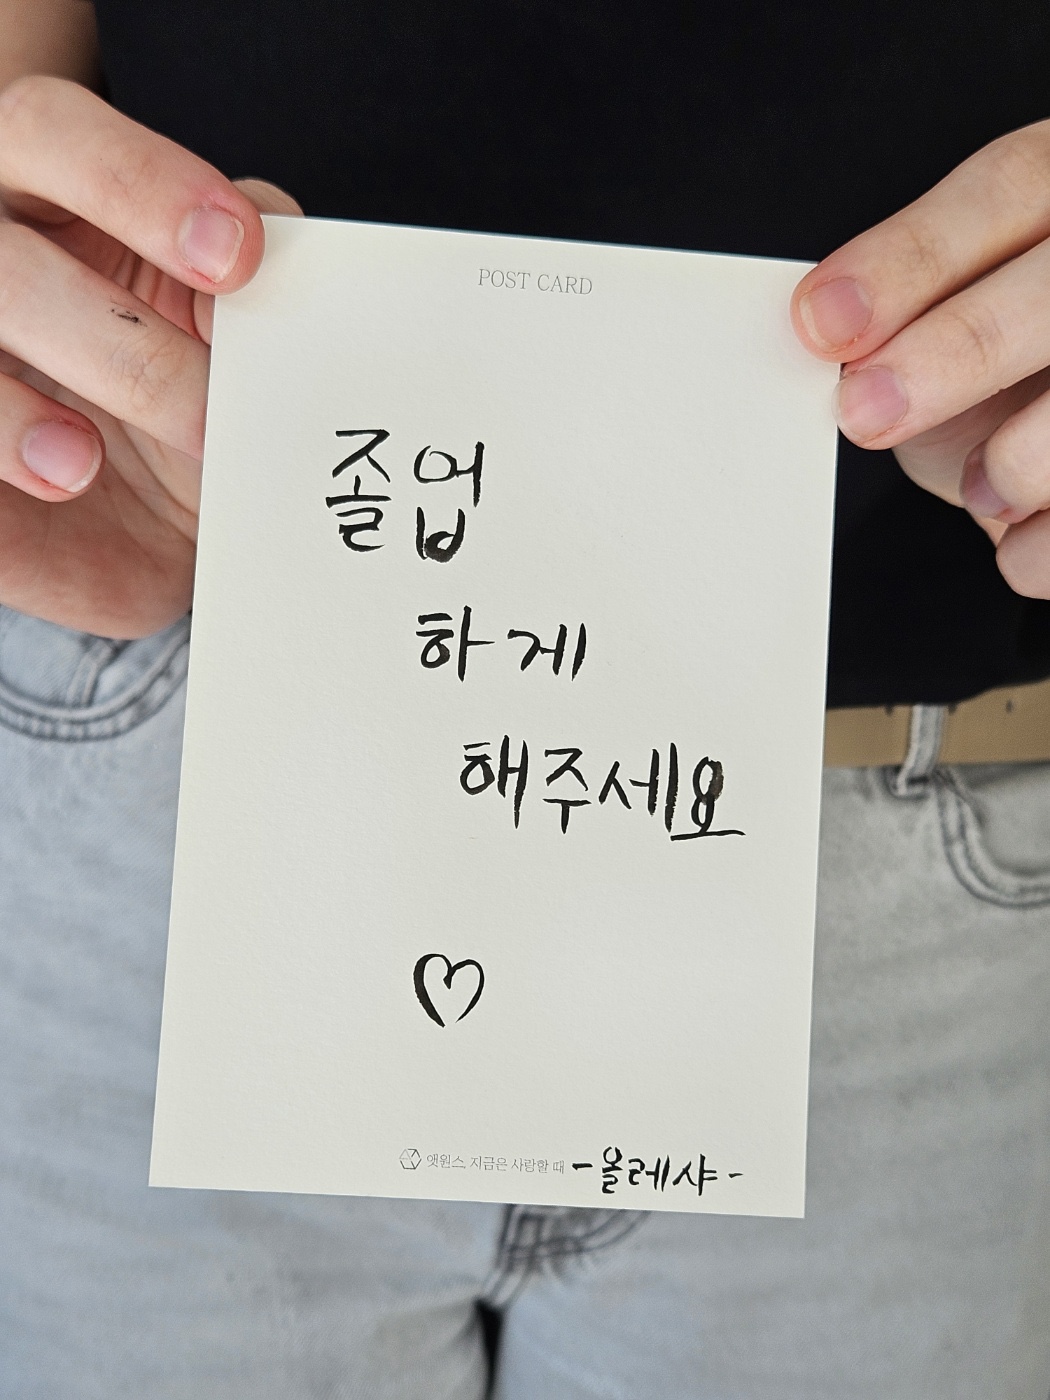 POST CARD
졸업
하게
해주세요
앳원스, 지금은 사랑할 때 -올레샤-